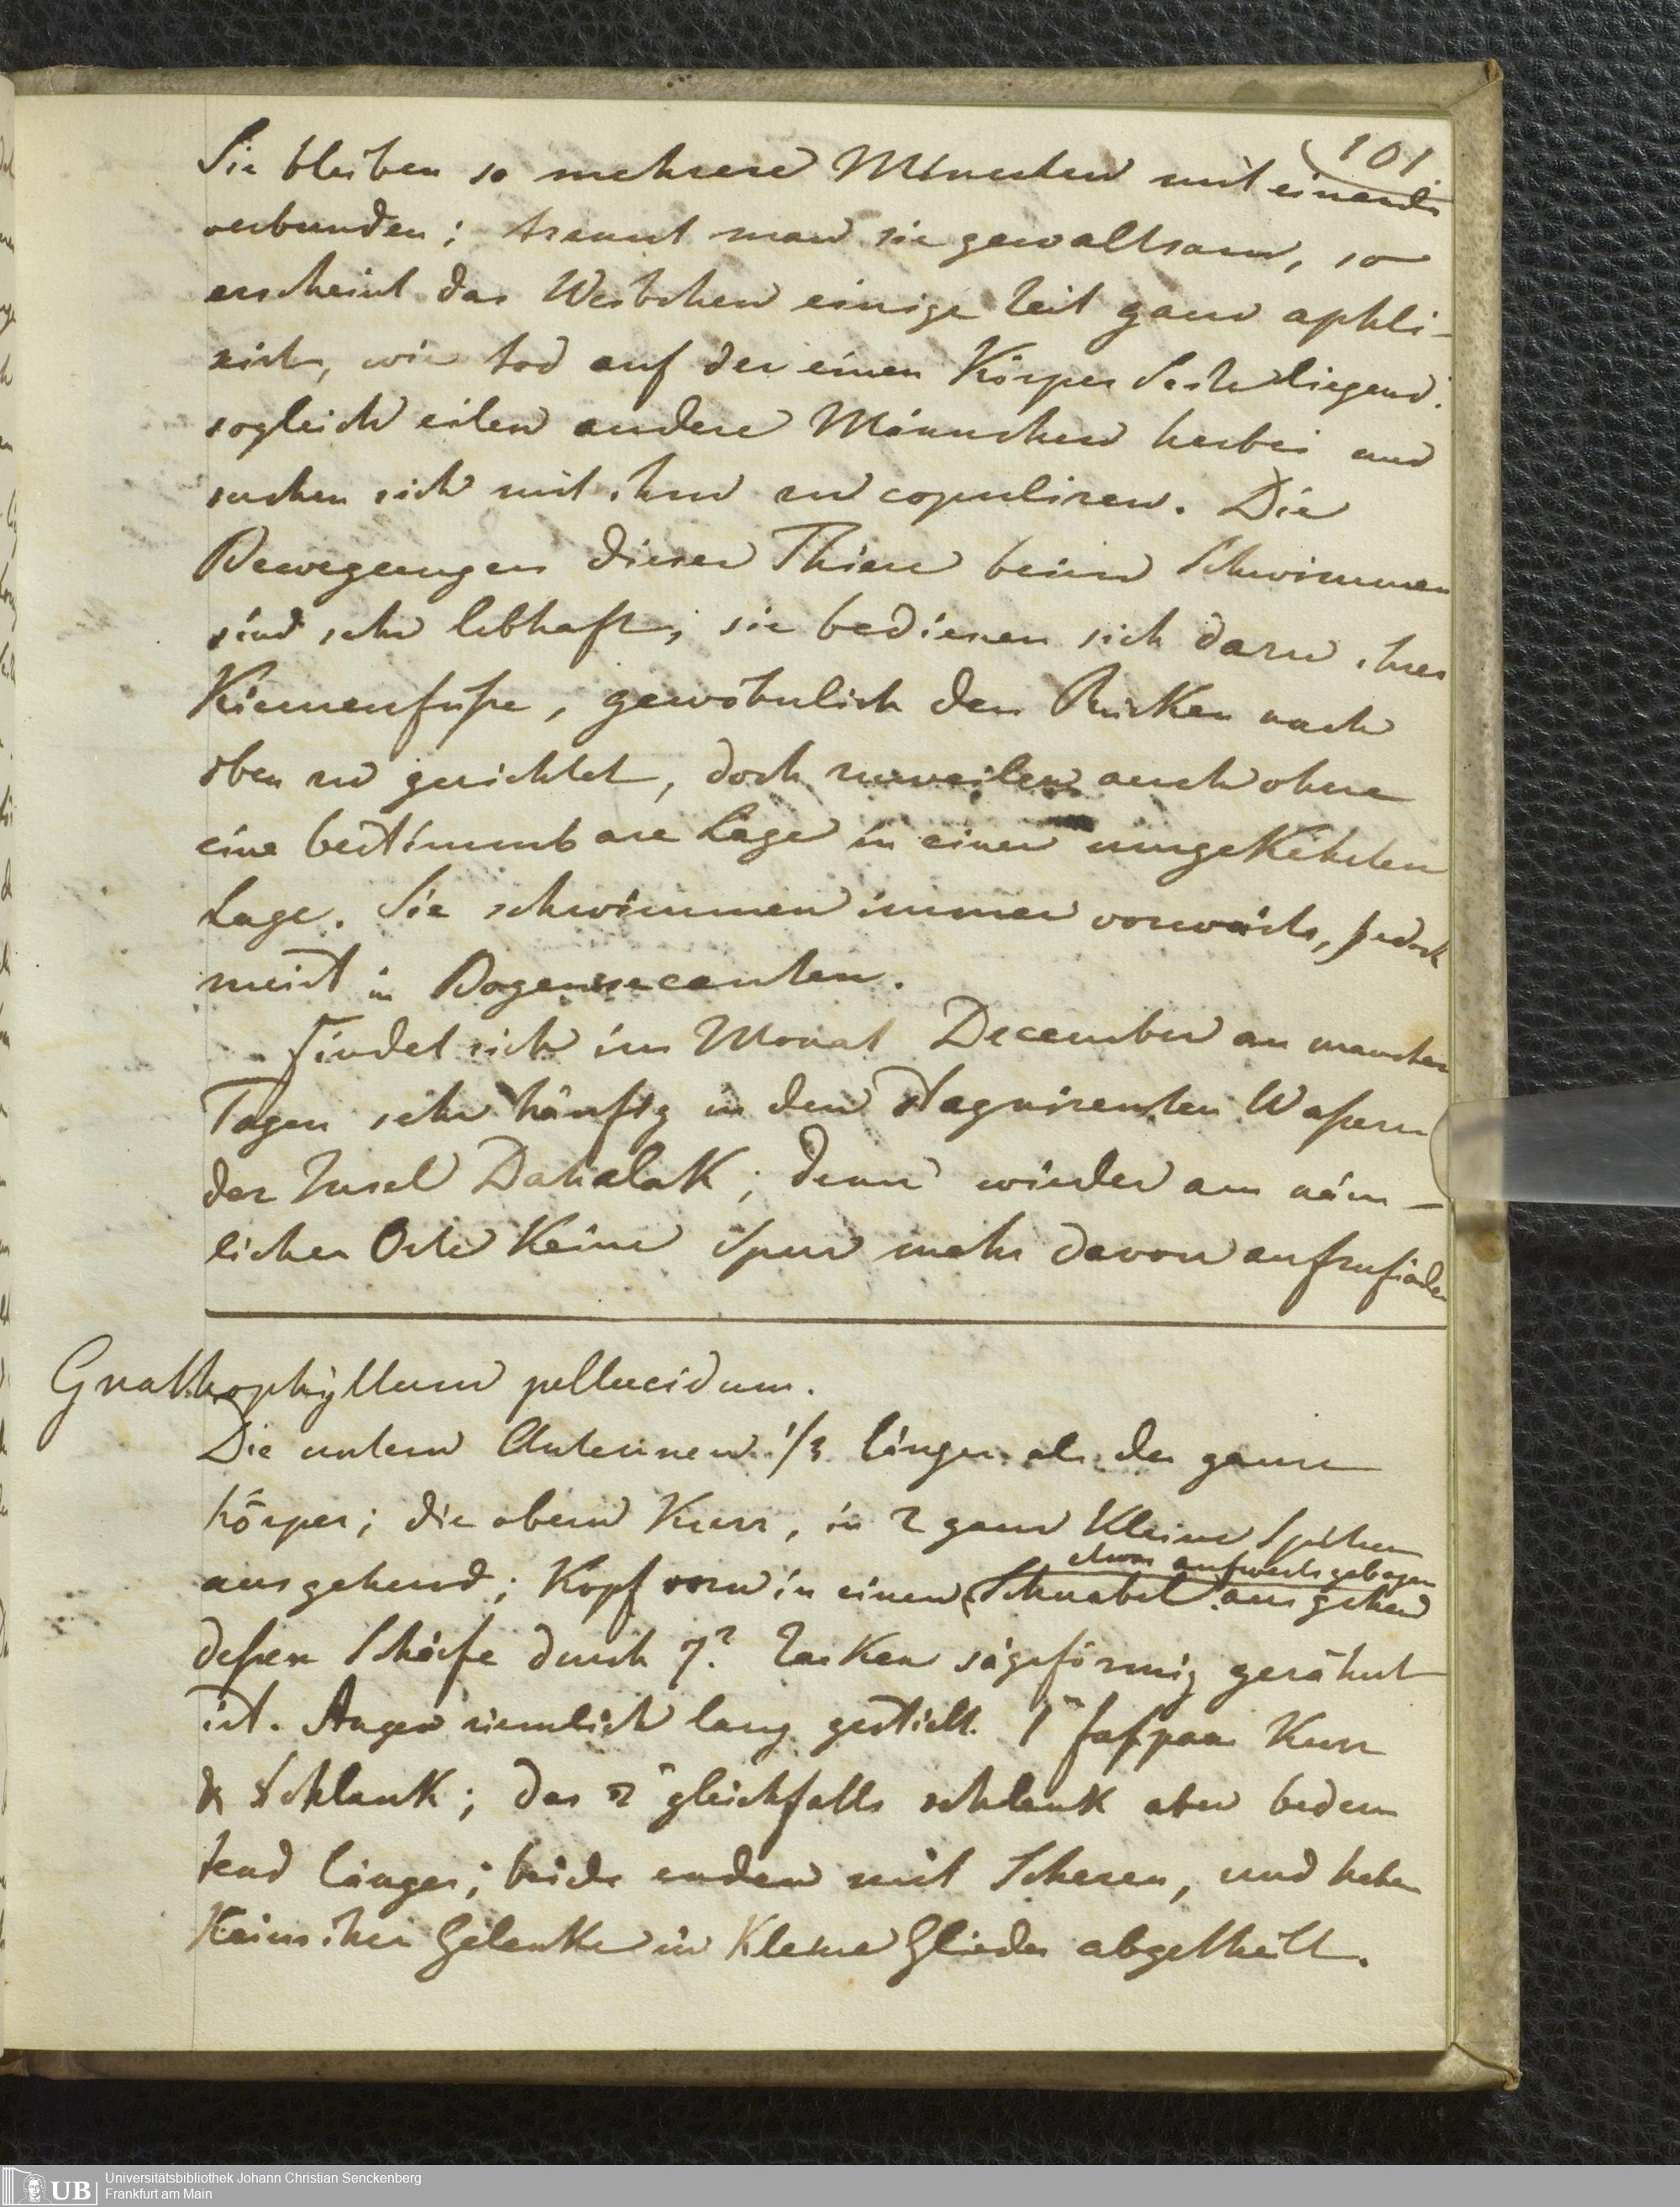 101.
Sie bleiben so mehrere Minuten mit einander
verbunden; trennt man sie gewaltsam, so
erscheint das Weibchen einige Zeit ganz
wie tod auf der einen Körper Seite liegend.
sogleich eilen andere Männchen herbei und
suchen sich mit ihm zu copuliren. Die
Bewegungen dieser Thiere beim Schwimmen
sind sehr lebhaft; sie bedienen sich dazu ihrer
Kiemenfüße, gewöhnlich den Rücken nach
oben zu gerichtet, doch zuweilen auch ohne
eine bestimmbare Lage in einer umgekehrten
Lage. Sie schwimmen immer vorwärts, jedoch
meist in Bogensecanten.
Findet sich im Monat December an manchen
Tagen sehr häufig in den stagnirenden Waßern
der Insel Dahalak; dann wieder am näm-
lichen Orte keine Spur mehr davon aufzufinden
Gnathophyllum pellucidum.
Die untern Antennen 1/3 länger als der ganze
Körper; die obern kurz, in 2 ganz kleine Spitzen
ausgehend; Kopf vorn in einen Schnabel ausgehend
etwas aufwerts gebogen
deßen Schärfe durch 7? Zacken sägeförmig gezähnt
ist. Augen ziemlich lang gestielt. 1 Fußpaar kurz
& schlank; das 2 gleichfalls schlank aber bedeu
tend länger; beide enden mit Scheren, und haben
keins ihrer Gelenke in kleine Glieder abgetheilt.
UB Universitätsbibliothek Johann Christian Senckenberg
Frankfurt am Main